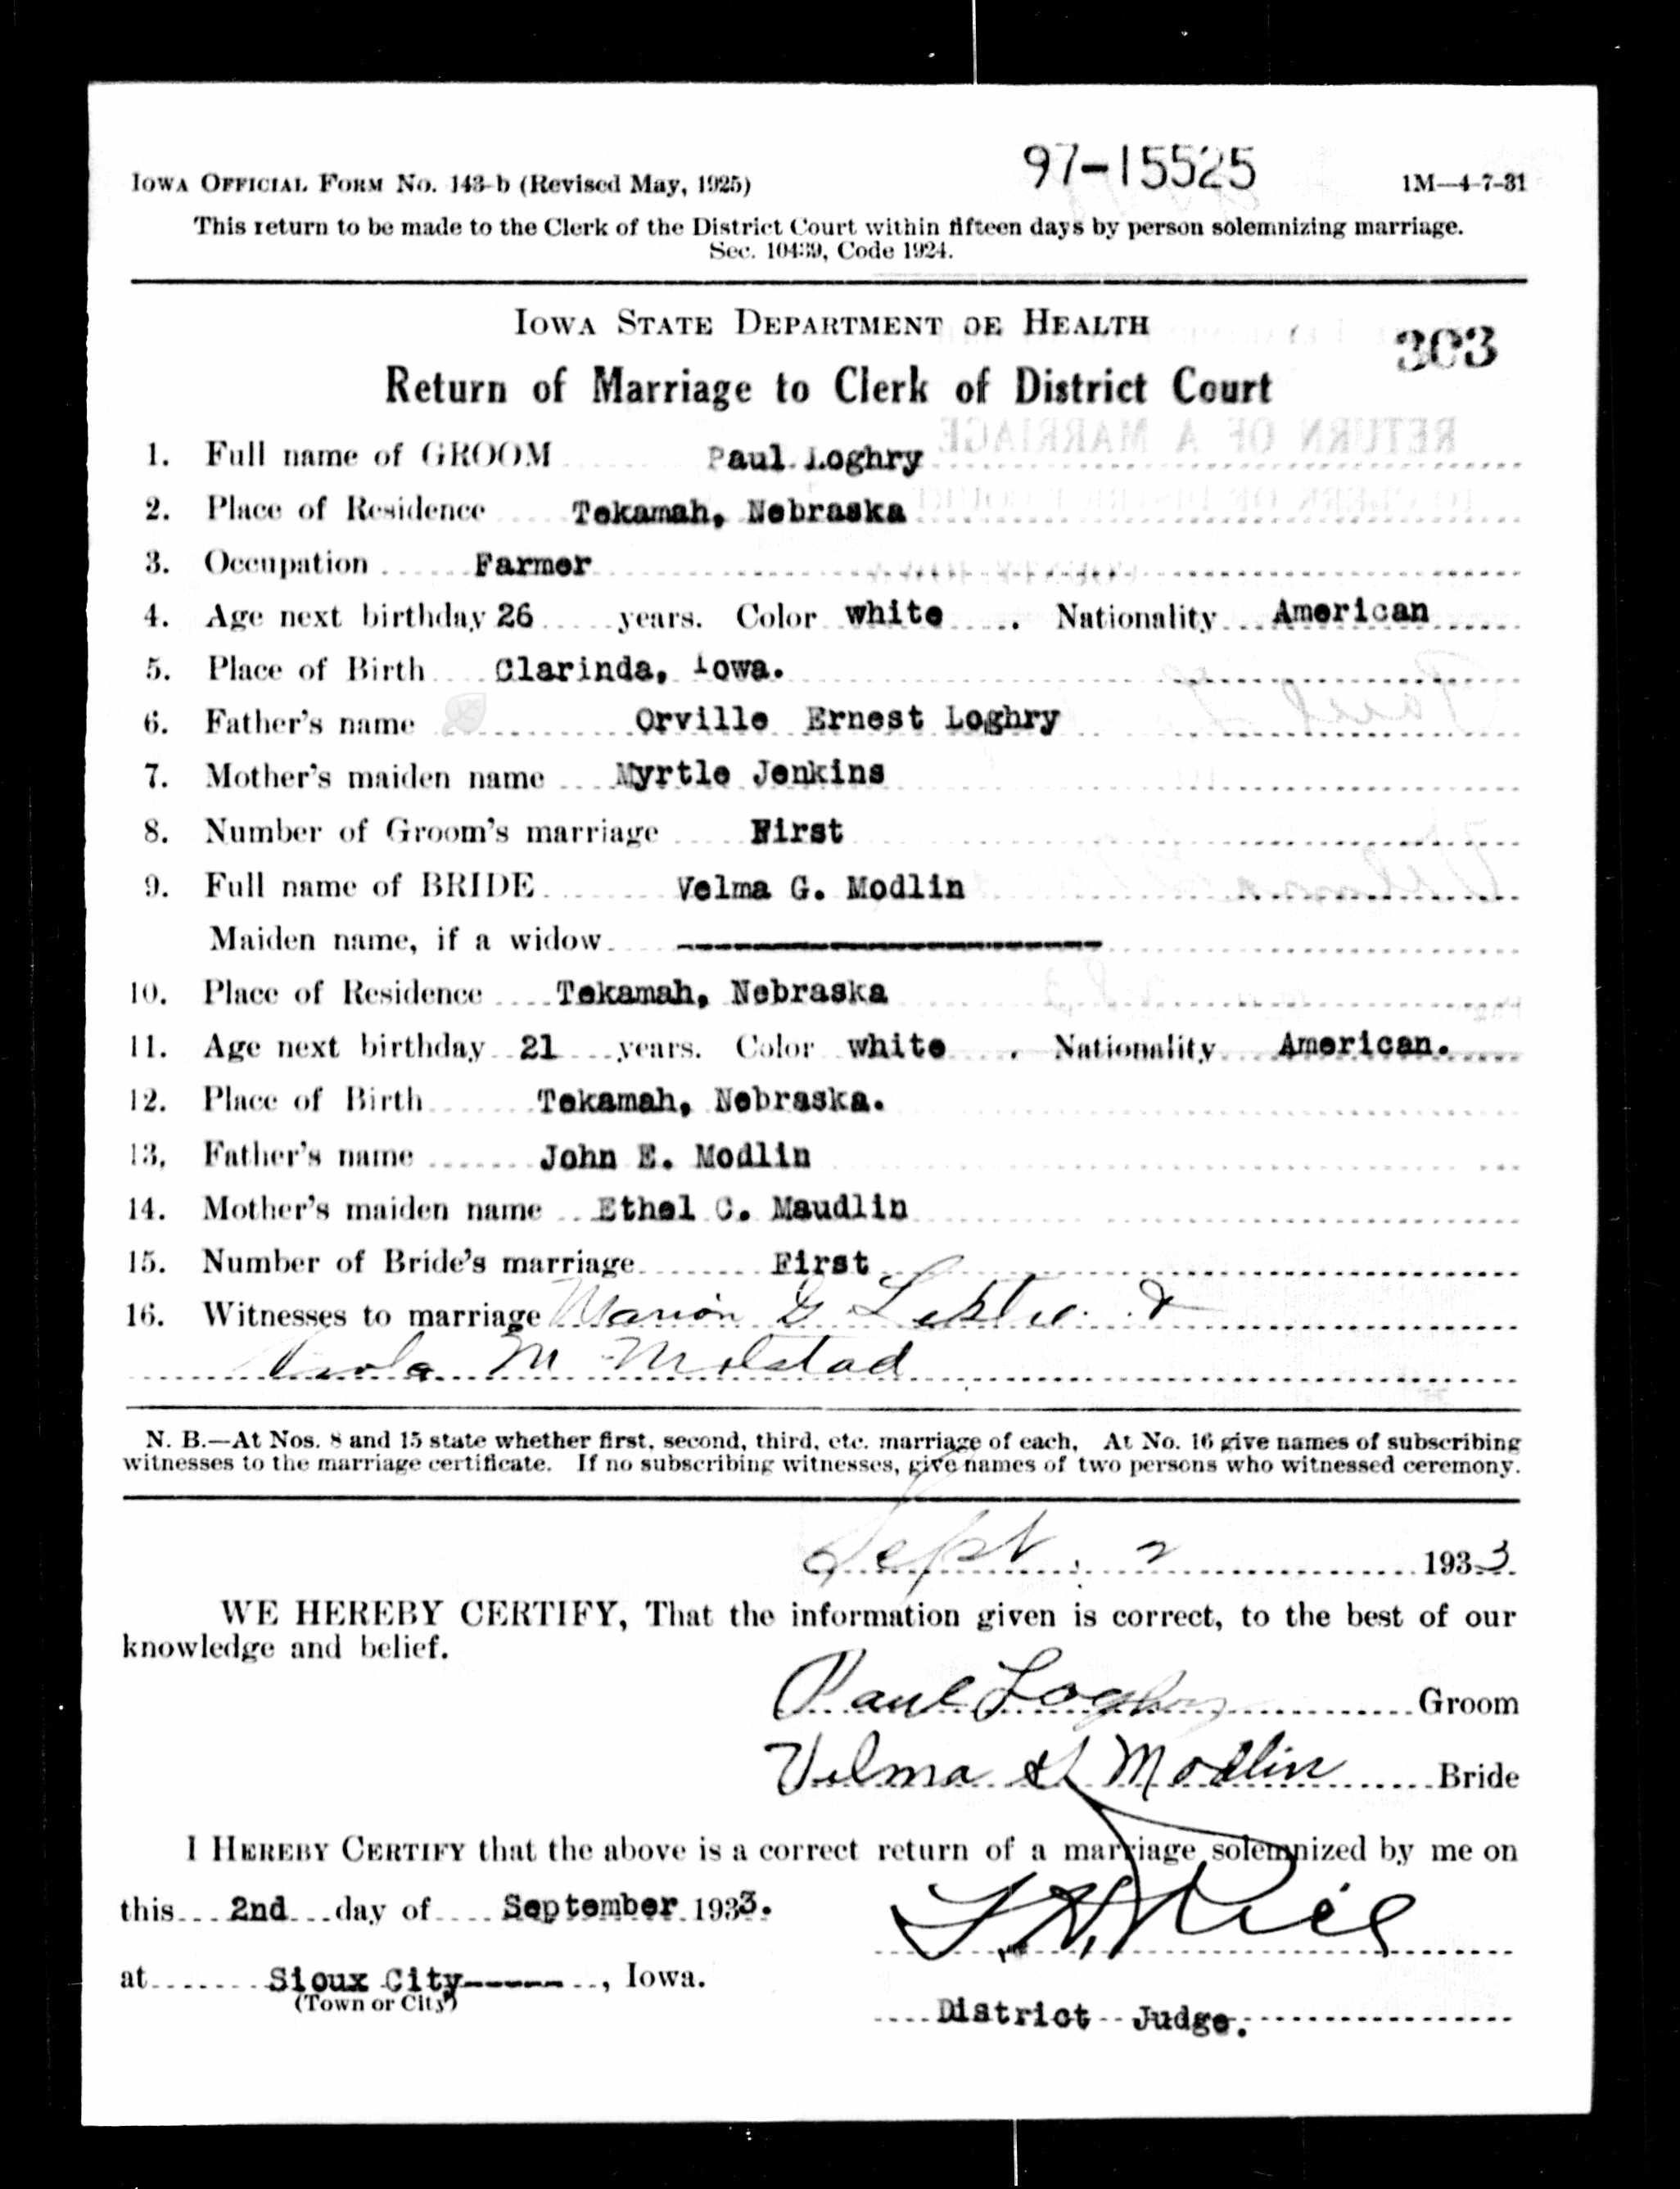 IOWA OFFICIAL FORM No. 143-b (Revised May, 1925) 97-15525 1M—4-7-31
This return to be made to the Clerk of the District Court within fifteen days by person solemnizing marriage.
Sec. 10439, Code 1924.
IOWA STATE DEPARTMENT OF HEALTH
303
Return of Marriage to Clerk of District Court
1. Full name of GROOM Paul Loghry
2. Place of Residence Tekamah, Nebraska
3. Occupation Farmer
4. Age next birthday 26 years. Color white. Nationality American
5. Place of Birth Clarinda, Iowa.
6. Father's name Orville Ernest Loghry
7. Mother's maiden name Myrtle Jenkins
8. Number of Groom's marriage First
9. Full name of BRIDE Velma G. Modlin
Maiden name, if a widow ----------
10. Place of Residence Tekamah, Nebraska
11. Age next birthday 21 years. Color white. Nationality American.
12. Place of Birth Tekamah, Nebraska.
13. Father's name John E. Modlin
14. Mother's maiden name Ethel C. Maudlin
15. Number of Bride's marriage First
16. Witnesses to marriage Marion G Leslie &
M Molstad
N. B.—At Nos. 8 and 15 state whether first, second, third, etc. marriage of each, At No. 16 give names of subscribing
witnesses to the marriage certificate. If no subscribing witnesses, give names of two persons who witnessed ceremony.
Sept. 2 1933
WE HEREBY CERTIFY, That the information given is correct, to the best of our
knowledge and belief.
Paul Loghry Groom
Velma G Modlin Bride
I HEREBY CERTIFY that the above is a correct return of a marriage solemnized by me on
this 2nd day of September 1933.
Rice
at Sioux City------, Iowa.
(Town or City)
District Judge.